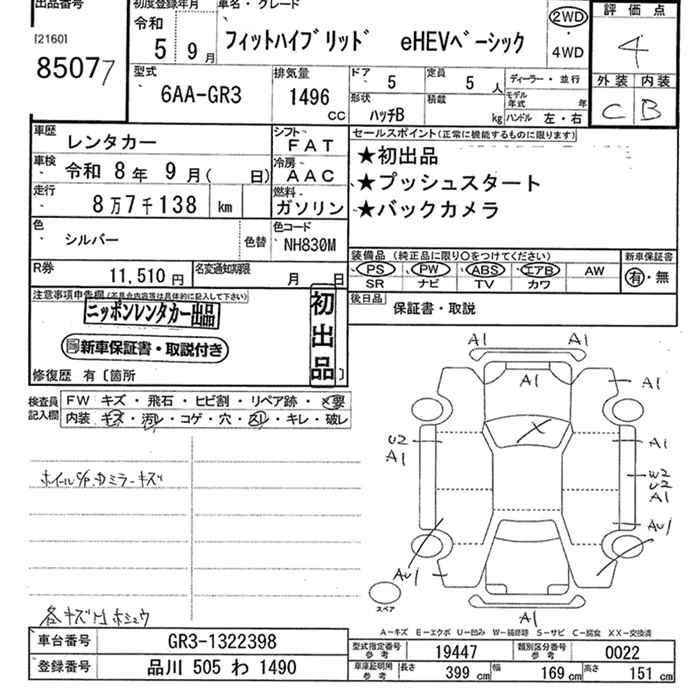 出品番号
[2160]
85077
初度登録年月
令和
5 9月
車名・グレード
フィットハイブリッド eHEVベーシック
2WD
・
4WD
評価点
4
外装 内装
C B
型式
6AA-GR3
排気量
1496
CC
ドア
5
定員
5 人
形状
ハッチB
積載
kg
ディーラー・並行
モデル年式 年
ハンドル 左・右
車歴
レンタカー
シフト
FAT
車検
令和 8年 9月( 日)
冷房
AAC
走行
8万7千138 km
燃料
ガソリン
色
シルバー
色替
色コード
NH830M
R券
11,510円
名変通知期限
月 日
セールスポイント(正常に機能するものに限ります)
★初出品
★プッシュスタート
★バックカメラ
装備品 (純正品に限り〇をつけてください)
PS PW ABS エアB AW
SR ナビ TV カワ
新車保証書
有・無
後日品
保証書・取説
注意事項申告欄(不具合内容等は具体的に記入して下さい)
ニッポンレンタカー出品
新車保証書・取説付き
初出品
修復歴 有〔箇所 〕
検査員記入欄
FW キズ・飛石・ヒビ割・リペア跡・×要
内装 キズ・汚レ・コゲ・穴・スレ・キレ・破レ
ホイールC/P.Dミラーキズ
各キズM ホシュウ
A1 A1
A1 A1
U2
A1
A1
W2
U2
A1
X
AU1
AU1
A1
スペア
A-キズ E-エクボ U-凹み W-補修跡 S-サビ C-腐食 XX-交換済
車台番号
GR3-1322398
登録番号
品川 505 わ 1490
型式指定番号
参考
19447
類別区分番号
参考
0022
車庫証明用
参考
長さ
399 cm
幅
169 cm
高さ
151 cm